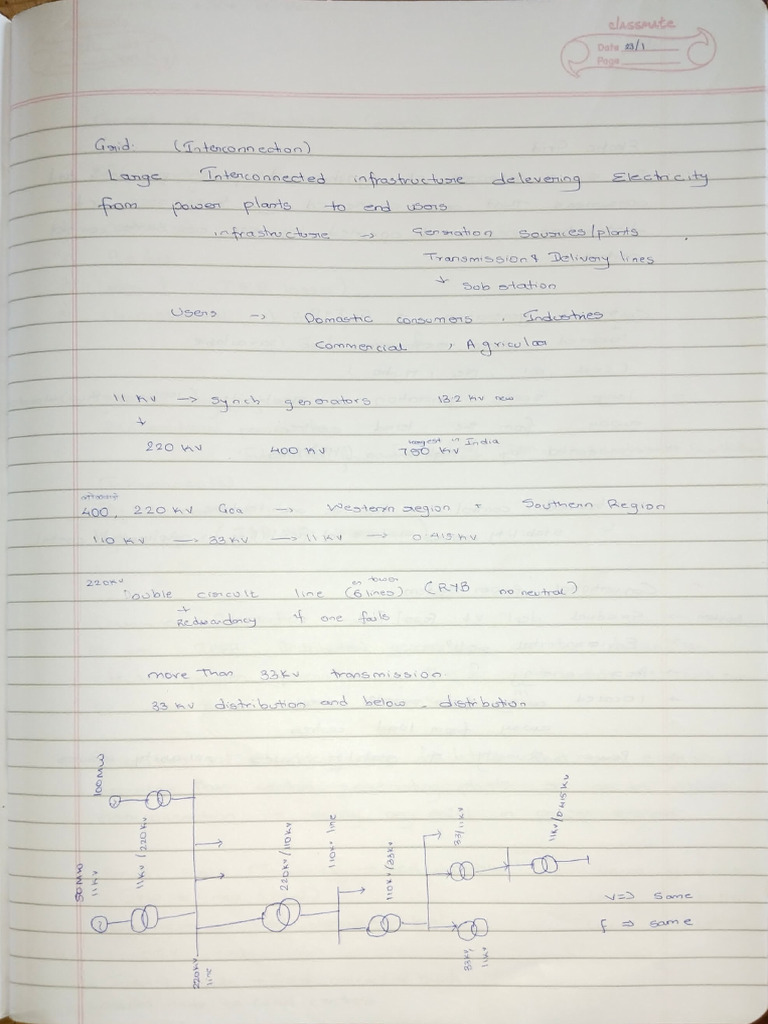 classmate
Date 23/1
Page
Grid. (Interconnection)
Large Interconnected infrastructure delevering Electricity
from power plants to end users
infrastructure → Generation sources/plants
Transmission & Delivery lines
Sub station
Users → Domastic consumers, Industries
Commercial, Agricultur
11 KV → Synch generators 13.2 KV new
↓
220 KV 400 KV 750 KV
largest in India
400, 220 KV Goa → Western region + Southern Region
110 KV → 33 KV → 11 KV → 0.415 KV
220KV
ouble circuit line (6 lines) (RYB no neutral)
on tower
↓
Redundancy if one fails
more than 33 KV transmission.
33 KV distribution and below - distribution
100MW
50MW
11KV
11KV/220KV
220KV
line
220KV/110KV
110KV line
110KV/33KV
33/11KV
33KV/
11KV
11KV/0.415KV
V ⇒ same
f ⇒ same